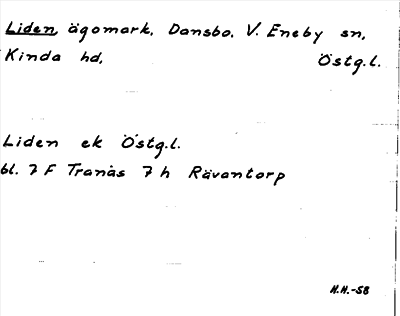 Liden, ägomark, Dansbo, V. Eneby sn,
Kinda hd, Östg.l.
Liden ek Östg.l.
bl. 7 F Tranås 7 h Rävantorp
H.H.-58